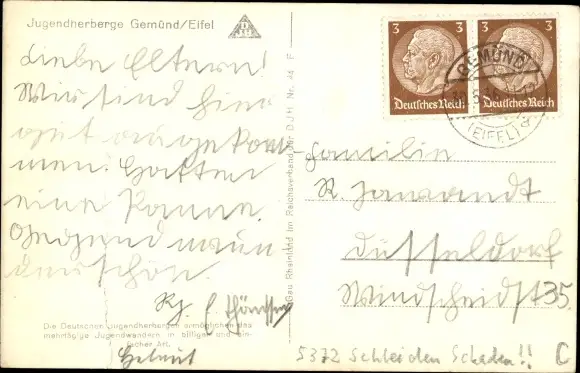 Jugendherberge Gemünd/Eifel
Liebe Eltern!
Wir sind hier
gut angekom-
men. Hatten
eine Panne.
Gegend wun
derschön.
Helmut
Die Deutschen Jugendherbergen ermöglichen das
mehrtägige Jugendwandern in billiger und ein-
facher Art.
Gau Rheinland im Reichsverband der DJH Nr. 44 F
3 3
Deutsches Reich Deutsches Reich
GEMÜND
(EIFEL)
Familie
Düsseldorf
Windscheidstr 35.
5372 Schleiden Schaden!! C